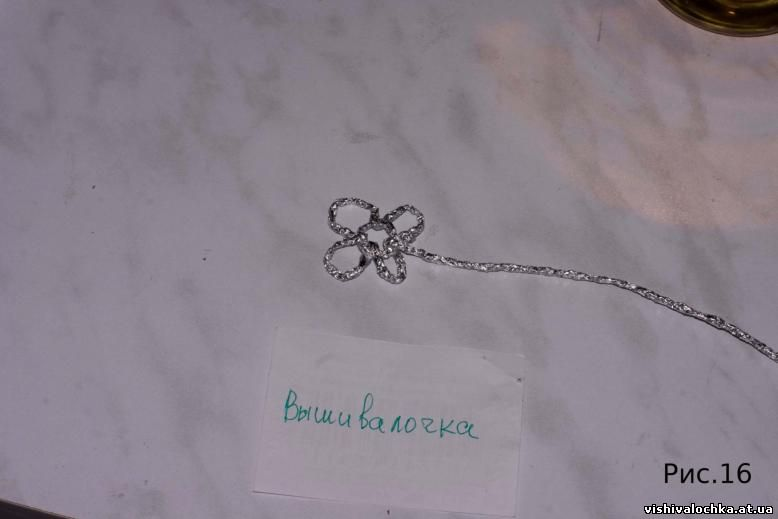 Вышивалочка
Рис.16
vishivalochka.at.ua